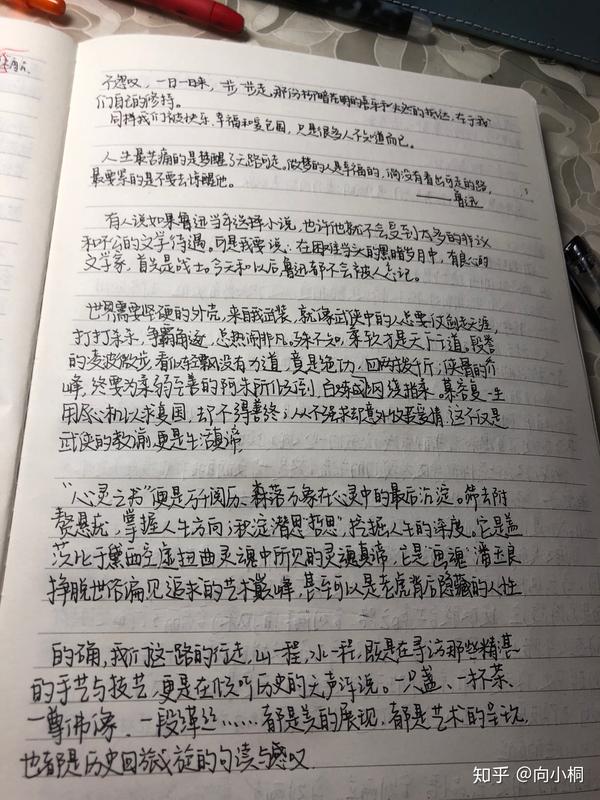 不感叹，一日一日来，一步一步走，那份柳暗花明的喜乐和必然的抵达，在于我
们自己的修持。
同样我们被快乐、幸福和爱包围，只是很多人不知道而已。
人生最苦痛的是梦醒了无路可走。做梦的人是幸福的，倘没有看出可走的路，
最要紧的是不要去惊醒他。
——鲁迅
有人说如果鲁迅当年选择小说，也许他就不会受到太多的非议
和不公的文学待遇。可是我要说：在困难当头的黑暗岁月中，有良心的
文学家，首先是战士。今天和以后鲁迅都不会被人忘记。
世界需要坚硬的外壳，来自我武装，就像武侠中的人总要仗剑走天涯，
打打杀杀，争霸角逐，总热闹非凡。殊不知，柔软才是天下行道。段誉
的凌波微步，看似轻飘没有力道，竟是绝功，四两拨千斤；侠骨的乔
峰，终要为柔弱至善的阿朱所倾倒，百炼成网绕指柔。慕容复一生
用尽心机以求复国，却不得善终；从不强求却意外收获爱情，这不仅是
武侠的教义，更是生活真谛。
“心灵之书”便是万千阅历、森罗万象在心灵中的最后沉淀。筛去附
赘悬疣，掌握人生方向；积淀潜思哲思，挖掘人生的深度。它是盖
茨比于黛西空虚扭曲灵魂中所见的灵魂真谛，它是“画魂”潘玉良
挣脱世俗偏见追求的艺术巅峰，甚至可以是老虎背后隐藏的人性
的确，我们这一路的行走，山一程，水一程，既是在寻访那些精湛
的手艺与技艺，更是在倾听历史的无声诉说。一只盏、一杯茶、
一尊佛像、一段缂丝……都是美的展现，都是艺术的呈现，
也都是历史回旋的句读与感叹.
知乎 @向小桐